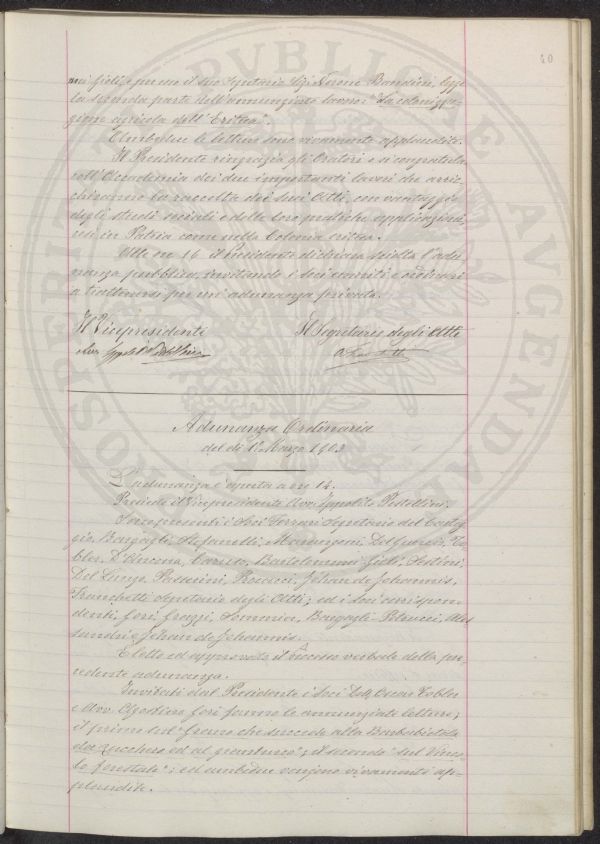 40
PVBLICAE
AVGENDAE
PROSPERITATI
la seconda parte dell'annunziato lavoro "La colonizza-
zione agricola dell'Eritrea".
Ambedue le letture sono vivamente applaudite.
Il Presidente ringrazia gli Oratori e si congratula
coll'Accademia dei due importanti lavori che arric-
chiranno la raccolta dei suoi Atti, con vantaggio
degli studi sociali e delle loro pratiche applicazioni,
sì in Patria come nella Colonia eritrea.
Alle ore 16 il Presidente dichiara sciolta l'adu-
nanza pubblica, invitando i Soci emeriti e ordinari
a trattenersi per un'adunanza privata.
Il Vicepresidente Il Segretario degli Atti
Adunanza Ordinaria
del dì 1° Marzo 1903
L'adunanza è aperta a ore 14.
Presiede il Vicepresidente Avv. Ippolito Pestellini.
Sono presenti i Soci Ferrari Segretario del Carteg-
gio, Bargagli, Stefanelli, Marangoni, Del Guercio, To-
bler, D'Ancona, Caruso, Bartolommei Gioli, Sestini,
Del Lungo, Passerini, Jehan de Johannis,
Franchetti Segretario degli Atti; ed i Soci corrispon-
denti, Fori, Grazzi, Sommier, Bargagli-Petrucci, Ales
sandri e Jehan de Johannis.
È letto ed approvato il processo verbale della pre-
cedente adunanza.
Invitati dal Presidente i Soci Dott. Oscar Tobler
e Avv. Agostino Fori fanno le annunziate letture;
il primo sul "Grano che succede alla Barbabietola
da zucchero ed al granturco"; il secondo "Sul Vinco-
lo forestale"; ed ambedue vengono vivamente ap-
plaudite.